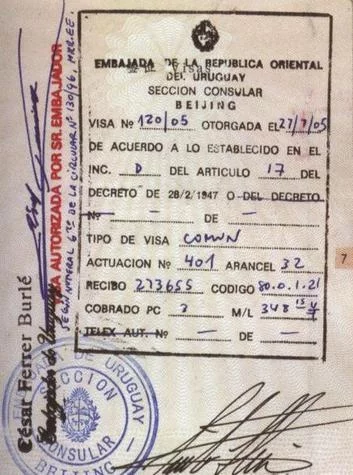 Visas
EMBAJADA DE LA REPUBLICA ORIENTAL
DEL URUGUAY
SECCION CONSULAR
BEIJING
VISA Nº 120/05 OTORGADA EL 27/7/05
DE ACUERDO A LO ESTABLECIDO EN EL
INC. D DEL ARTICULO 17 DEL
DECRETO DE 28/2/1947 O DEL DECRETO
Nº — DE —
TIPO DE VISA COMUN
ACTUACION Nº 401 ARANCEL 32
RECIBO 273655 CODIGO 80.0.1.21
COBRADO PC 3 M/L 348
TELEX AUT. Nº — DE —
7
VISA AUTORIZADA POR SR. EMBAJADOR
SEGÚN NUMERAL 6 DE LA CIRCULAR Nº 130/96, MRR.EE.
César Ferrer Burlé
DE URUGUAY
SECCION
CONSULAR
BEIJING